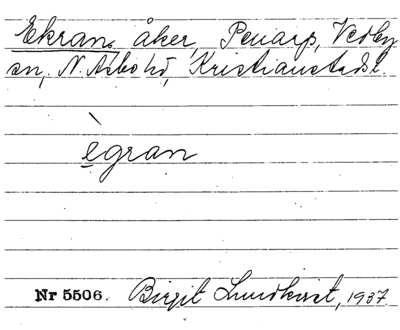 Ekran, åker, Penarp, Vedby
sn, N. Åsbo hd, Kristianstads l.
ègran
Nr 5506. Birgit Lundkvist, 1937